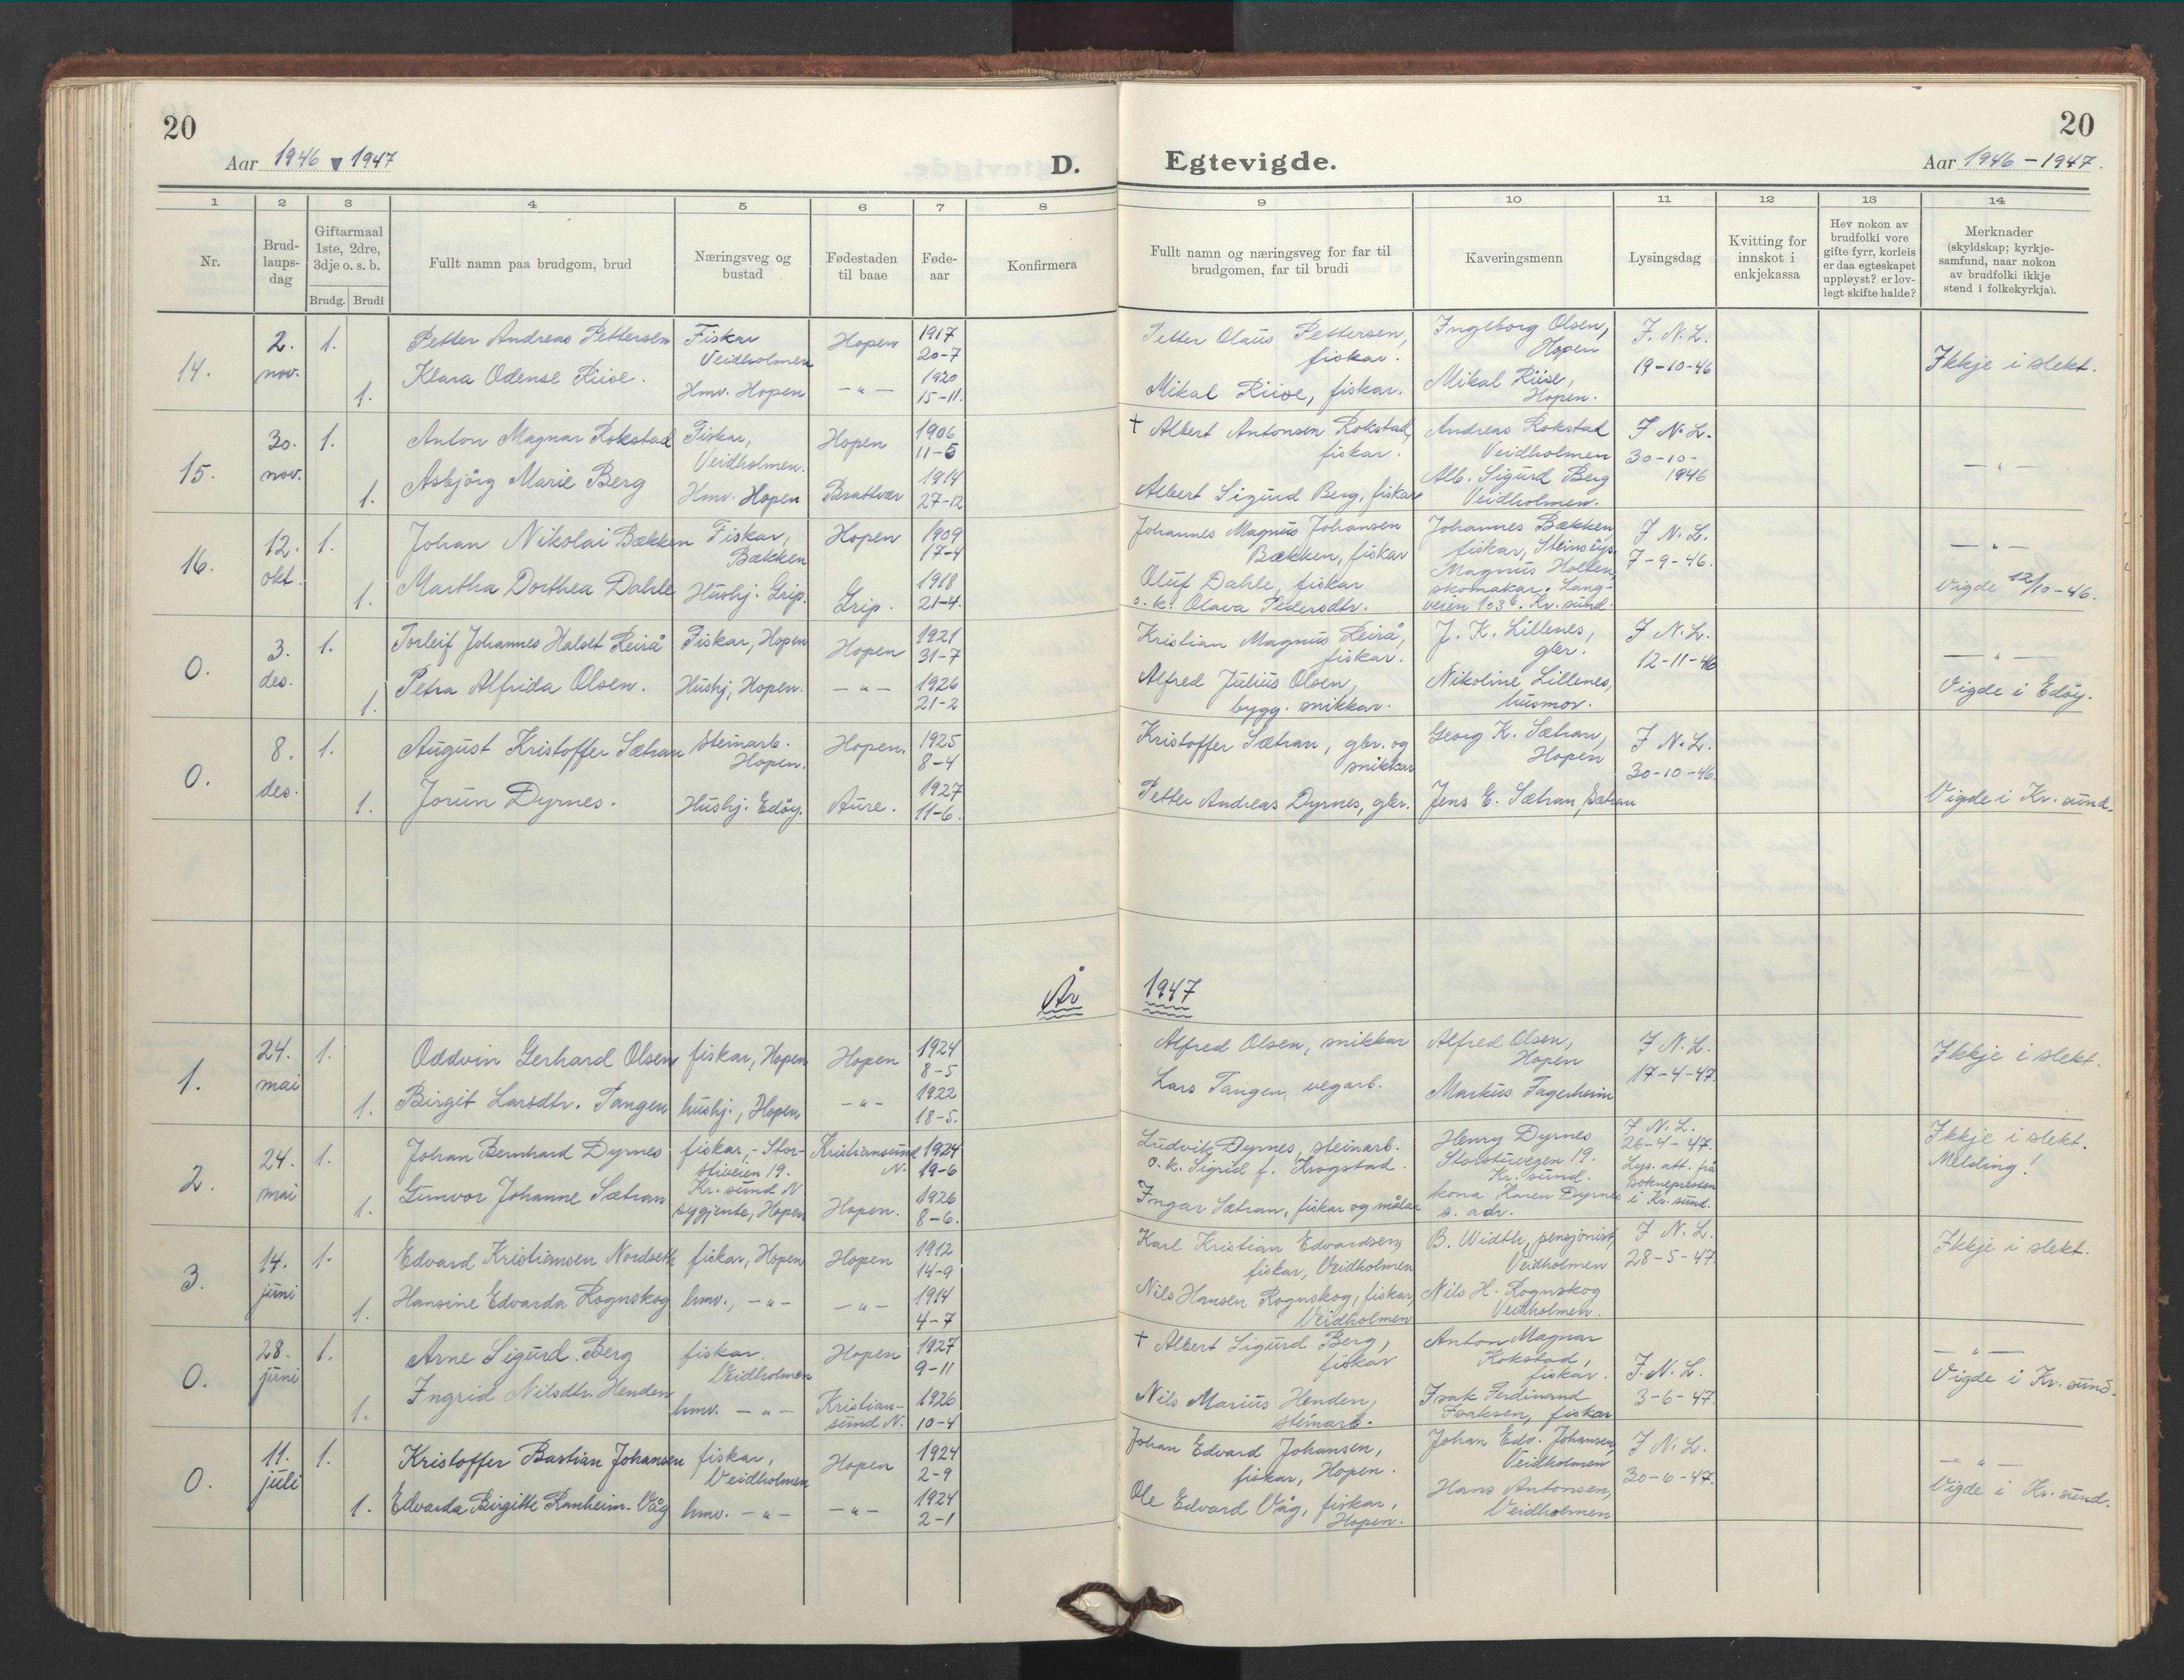 20
Aar 1946 1947
D.
1 2 3 4 5 6 7 8
Nr.
Brud-
laups-
dag
Giftarmaal
1ste, 2dre,
3dje o. s. b.
Brudg. Brudi
Fullt namn paa brudgom, brud
Næringsveg og
bustad
Fødestaden
til baae
Føde-
aar
Konfirmera
14.
2.
nov.
1.
Petter Andreas Pettersen
Fiskar
Veidholmen
Hopen
1917
20-7
1.
Klara Odense Riise.
Hmv. Hopen
— " —
1920
15-11.
15.
30.
nov.
1.
Anton Magnar Rokstad
Fiskar,
Veidholmen.
Hopen
1906
11-5
1.
Asbjörg Marie Berg
Hmv. Hopen
Brattvær
1914
27-12
16.
12.
okt.
1.
Johan Nikolai Bækken
Fiskar,
Bækken
Hopen
1909
17-4
1.
Martha Dorthea Dahle
Hushj. Grip.
Grip.
1918
21-4.
0.
3.
des.
1.
Torleif Johannes Halset Reirå
Fiskar, Hopen
Hopen
1921
31-7
1.
Petra Alfrida Olsen.
Hushj, Hopen.
— " —
1926
21-2
0.
8.
des.
1.
August Kristoffer Sætran
Steinarb.
Hopen.
Hopen.
1925
8-4
1.
Jorun Dyrnes.
Hushj. Edöy.
Aure.
1927
11-6.
År
1.
24.
mai
1.
Oddvin Gerhard Olsen
fiskar, Hopen
Hopen
1924
8-5
1.
Birgit Larsdtr. Tangen
hushj., Hopen
— " —
1922
18-5.
2.
24.
mai
1.
Johan Bernhard Dyrnes
fiskar, - Stor-
stiveien 19.
Kr. sund N
Kristiansund
N.
1924
19-6
1.
Gunvor Johanne Sætran
sygjente, Hopen
Hopen.
1926
8-6.
3.
14.
juni
1.
Edvard Kristiansen Nordseth
fiskar, Hopen
Hopen
1912
14-9
1.
Hansine Edvarda Rognskog
hmv., — " —
— " —
1914
4-7
0.
28.
juni
1.
Arne Sigurd Berg
fiskar,
Veidholmen
Hopen
1927
9-11
1.
Ingrid Nilsdtr. Henden
hmv. — " —
Kristian-
sund N.
1926
10-4
0.
11.
juli
1.
Kristoffer Bastian Johansen
fiskar,
Veidholmen
Hopen
1924
2-9
1.
Edvarda Birgitte Ranheim-Våg
hmv. — " —
— " —
1924
2-1
20
Egtevigde.
Aar 1946 - 1947.
9 10 11 12 13 14
Fullt namn og næringsveg for far til
brudgomen, far til brudi
Kaveringsmenn
Lysingsdag
Kvitting for
innskot i
enkjekassa
Hev nokon av
brudfolki vore
gifte fyrr, korleis
er daa egteskapet
uppløyst? er lov-
legt skifte halde?
Merknader
(skyldskap; kyrkje-
samfund, naar nokon
av brudfolki ikkje
stend i folkekyrkja).
Petter Olaus Pettersen,
fiskar.
Mikal Riise, fiskar.
Ingeborg Olsen,
Hopen
Mikal Riise,
Hopen.
F. N. L.
19-10-46
Ikkje i slekt.
† Albert Antonsen Rokstad,
fiskar.
Albert Sigurd Berg, fiskar
Andreas Rokstad
Veidholmen
Alb. Sigurd Berg
Veidholmen.
F. N. L.
30-10-
1946
— " —
Johannes Magnus Johansen
Bækken, fiskar
Oluf Dahle, fiskar
o. k. Olava Pedersdtr.
Johannes Bækken,
fiskar, Steinsöys.
Magnus Holten,
skomakar. Lang-
veien 103b. Kr. sund.
F. N. L.
7-9-46.
— " —
Vigde 12/10-46.
Kristian Magnus Reirå,
fiskar.
Alfred Julius Olsen,
bygg. snikkar.
J. K. Lillenes,
gbr.
Nikoline Lillenes,
husmor.
F. N. L.
12-11-46
— " —
Vigde i Edöy.
Kristoffer Sætran, gbr. og
snikkar
Petter Andreas Dyrnes, gbr.
Georg K. Sætran,
Hopen
Jens E. Sætran, Sætran
F. N. L.
30-10-46.
Vigde i Kr. sund.
1947
Alfred Olsen, snikkar
Lars Tangen, vegarb.
Alfred Olsen,
Hopen
Markus Fagerheim
F. N. L.
17-4-47.
Ikkje i slekt.
Ludvik Dyrnes, steinarb.
o. k. Sigrid f. Krogstad.
Ingar Sætran, fiskar og målar
Henry Dyrnes
Storstuvegen 19.
Kr. sund.
kona Karen Dyrnes
s. adr.
F. N. L.
26-4-47.
Lys. att. frå
Soknepresten
i Kr. sund.
Ikkje i slekt.
Melding!
Karl Kristian Edvardsen,
fiskar, Veidholmen
Nils Hansen Rognskog, fiskar,
Veidholmen
B. Width, pensjonist,
Veidholmen
Nils H. Rognskog
Veidholmen.
F. N. L.
28-5-47.
Ikkje i slekt.
† Albert Sigurd Berg,
fiskar
Nils Marius Henden,
steinarb.
Anton Magnar
Rokstad,
fiskar.
Isak Ferdinand
Isaksen, fiskar
F. N. L.
3-6-47.
— " —
Vigde i Kr. sund.
Johan Edvard Johansen,
fiskar, Hopen.
Ole Edvard Våg, fiskar,
Hopen.
Johan Edv. Johansen,
Veidholmen
Hans Antonsen,
Veidholmen
F. N. L.
30-6-47.
— " —
Vigde i Kr. sund.